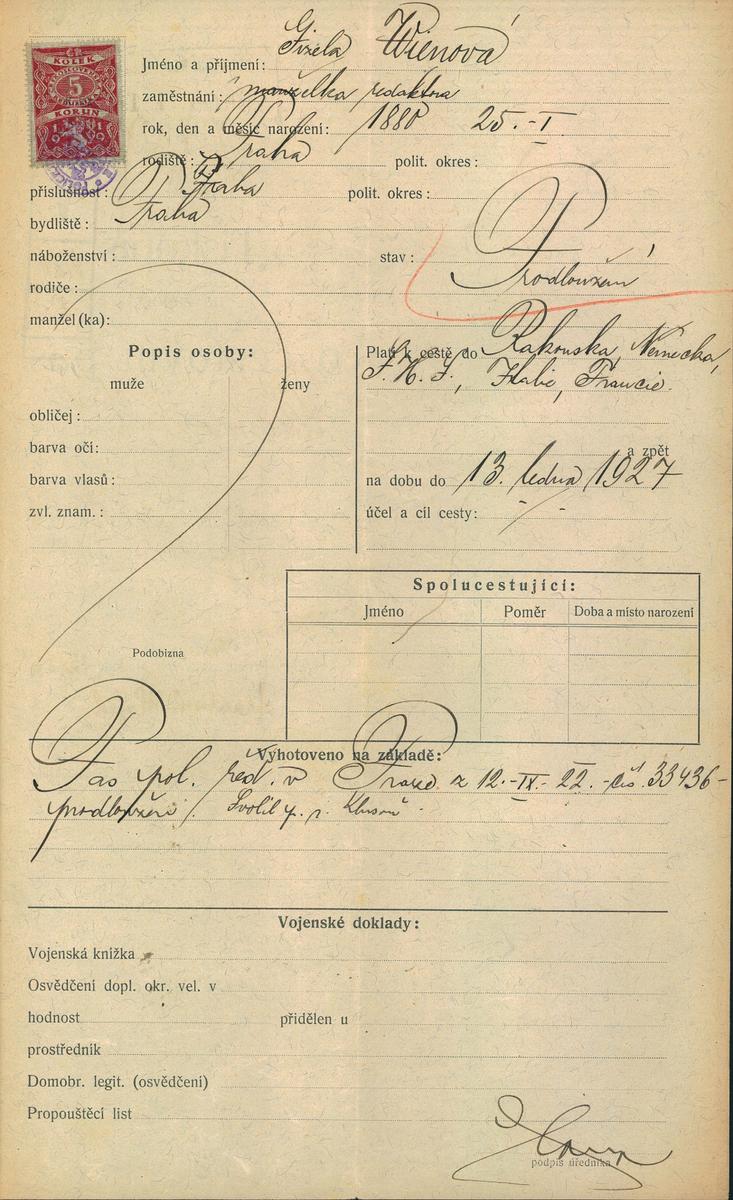 ČR
KOLEK
5
KORUN
1919
Jméno a příjmení: Gizela Wienová
zaměstnání: manželka redaktora
rok, den a měsíc narození: 1880 25.-I.
rodiště: Praha polit. okres:
příslušnost: Praha polit. okres:
bydliště: Praha
náboženství: stav: Prodloužení
rodiče:
manžel(ka):
Popis osoby:
muže ženy
obličej:
barva očí:
barva vlasů:
zvl. znam.:
Platí k cestě do Rakouska, Německa,
S.H.S., Italie, Francie.
a zpět
na dobu do 13. ledna 1927
účel a cíl cesty: - -
Spolucestující:
Jméno Poměr Doba a místo narození
Podobizna
Vyhotoveno na základě:
Pas pol. řed. v Praze z 12.-IX.-22.-čís. 33436-
prodloužení. Svolil p. r.
Vojenské doklady:
Vojenská knížka
Osvědčení dopl. okr. vel. v
hodnost přidělen u
prostředník
Domobr. legit. (osvědčení)
Propouštěcí list
podpis úředníka